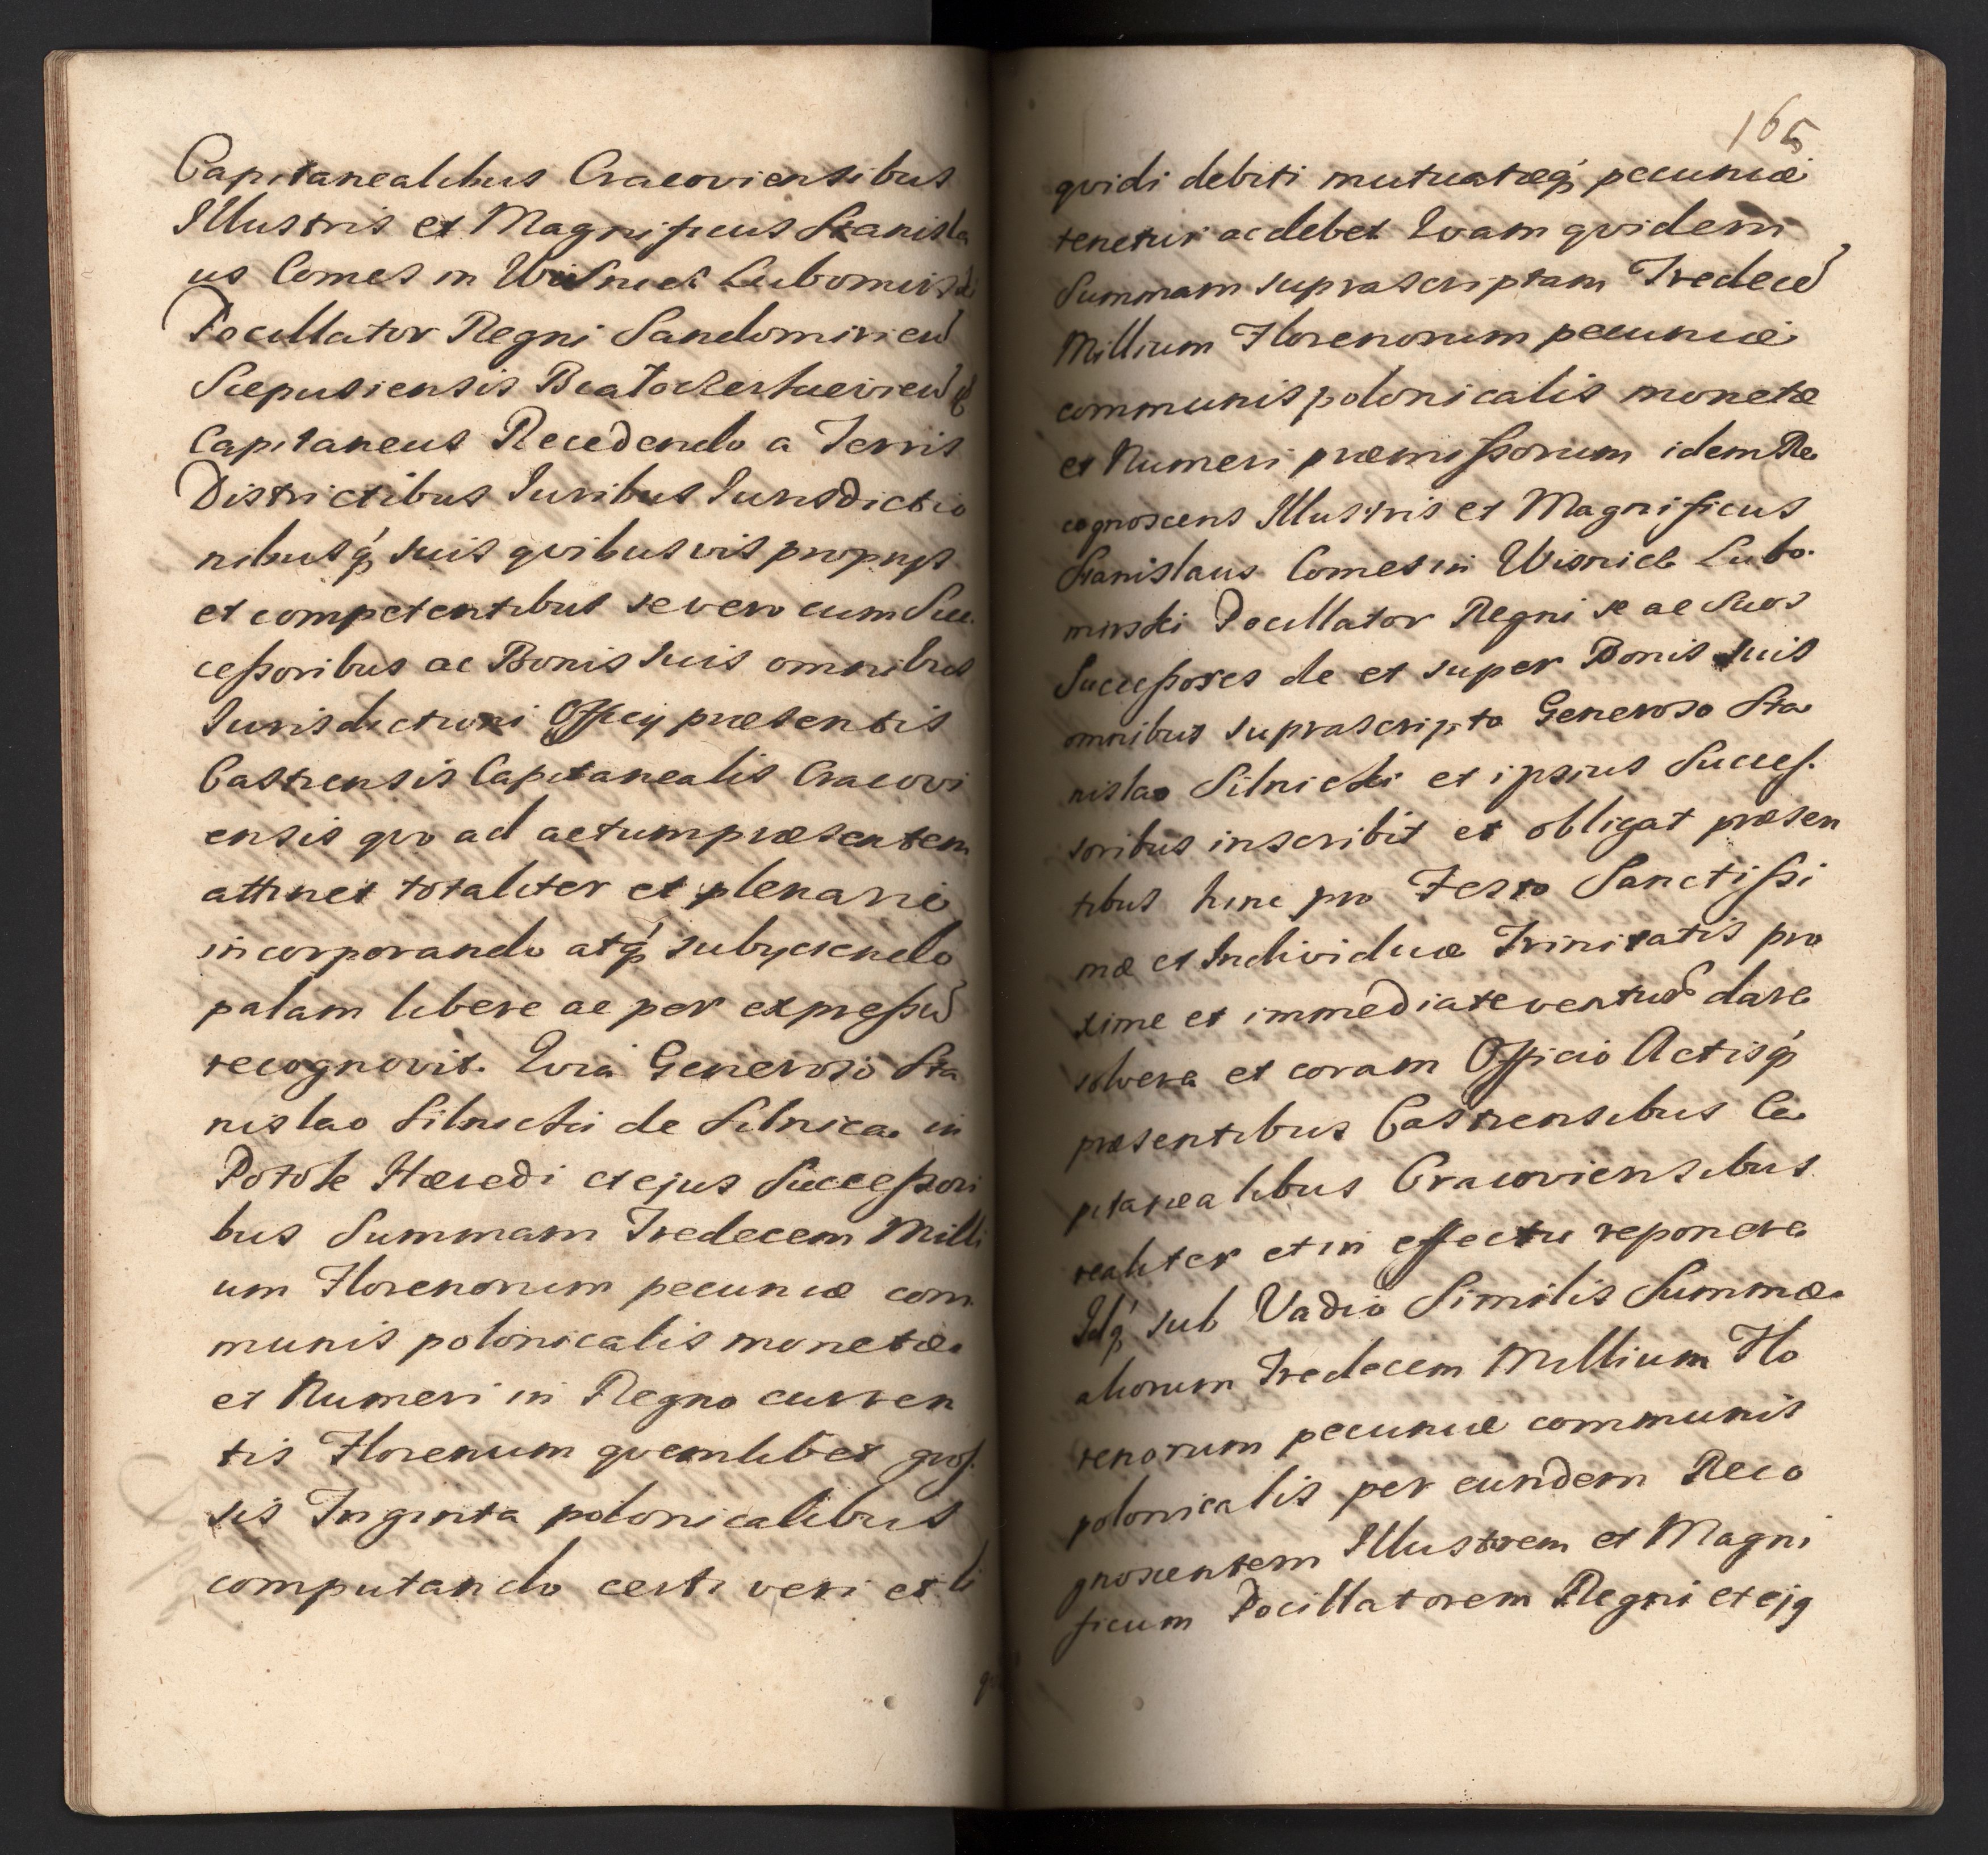 Capitanealibus Cracoviensibus
Illustris et Magnificus Stanisla
us Comes in Wisnicz Lubomirski
Pocillator Regni Sandomirien
Scepusiensis Biało
Capitaneus Recedendo a Terris
Districtibus Iuribus Iurisdictio
nibusq́ suis qvibusvis proprys
et competentibus se vero cum Suc
ceßoribus ac Bonis suis omnibus
Iurisdictioni Officy præsentis
Castrensis Capitanealis Cracovi
ensis qvo ad actum præsentem
attinet totaliter et plenariè
incorporando atq́ subyciendo
palam libere ac per expreßu
recognovit. Qvia Generoso Sta
nislao Silnicki de Silnica in
Potok Hæredi et ejus Succeßori
bus Summam Tredecem Milli
um Florenorum pecuniæ com
munis polonicalis monetæ
et Numeri in Regno curren
tis Florenum qvemlibet gros
sis Triginta polonicalibus
computando certi veri et li
qvidi debiti mutuatæq́ pecuniæ
tenetur ac debet Qvam qvidem
Summam suprascriptam Tredece
Millium Florenorum pecuniæ
communis polonicalis monetæ
et Numeri præmißorum idem Re
cognoscens Illustris et Magnificus
Stanislaus Comes in Wisnicz Lubo
mirski Pocillator Regni se ac Suos
Succeßores de et super Bonis suis
omnibus suprascripto Generoso Sta
nislao Silnicki et ipsius Succes
soribus inscribit et obligat præsen
tibus hinc pro Festo Sanctißi
mæ et Individuæ Trinitatis pro
xime et immediate ventur dare
solvere et coram Officio Actisq́
præsentibus Castrensibus Ca
pitanealibus Cracoviensibus
realiter et in effectu reponere
Idq́ sub Vadio Similis Summæ
aliorum Tredecem Millium Flo
renorum pecuniæ communis
polonicalis per eundem Reco
gnoscentem Illustrem et Magni
ficum Pocillatorem Regni et ejq
165